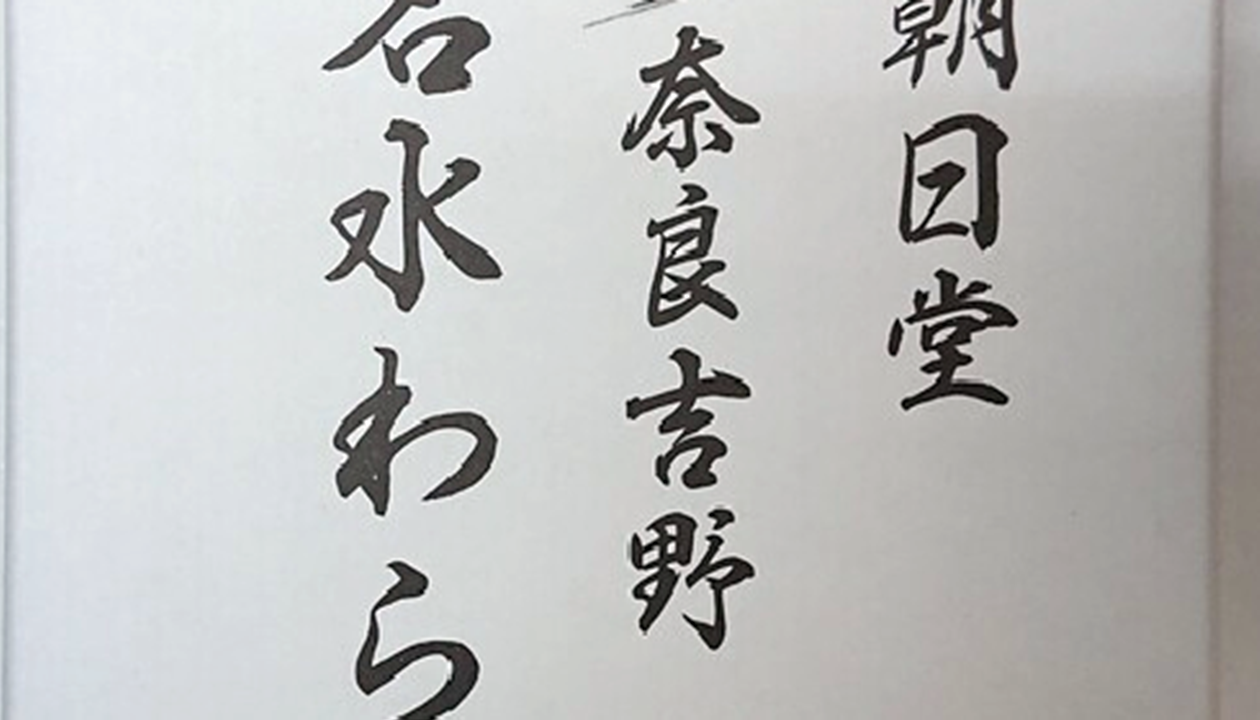 朝日堂
奈良吉野
名水わら